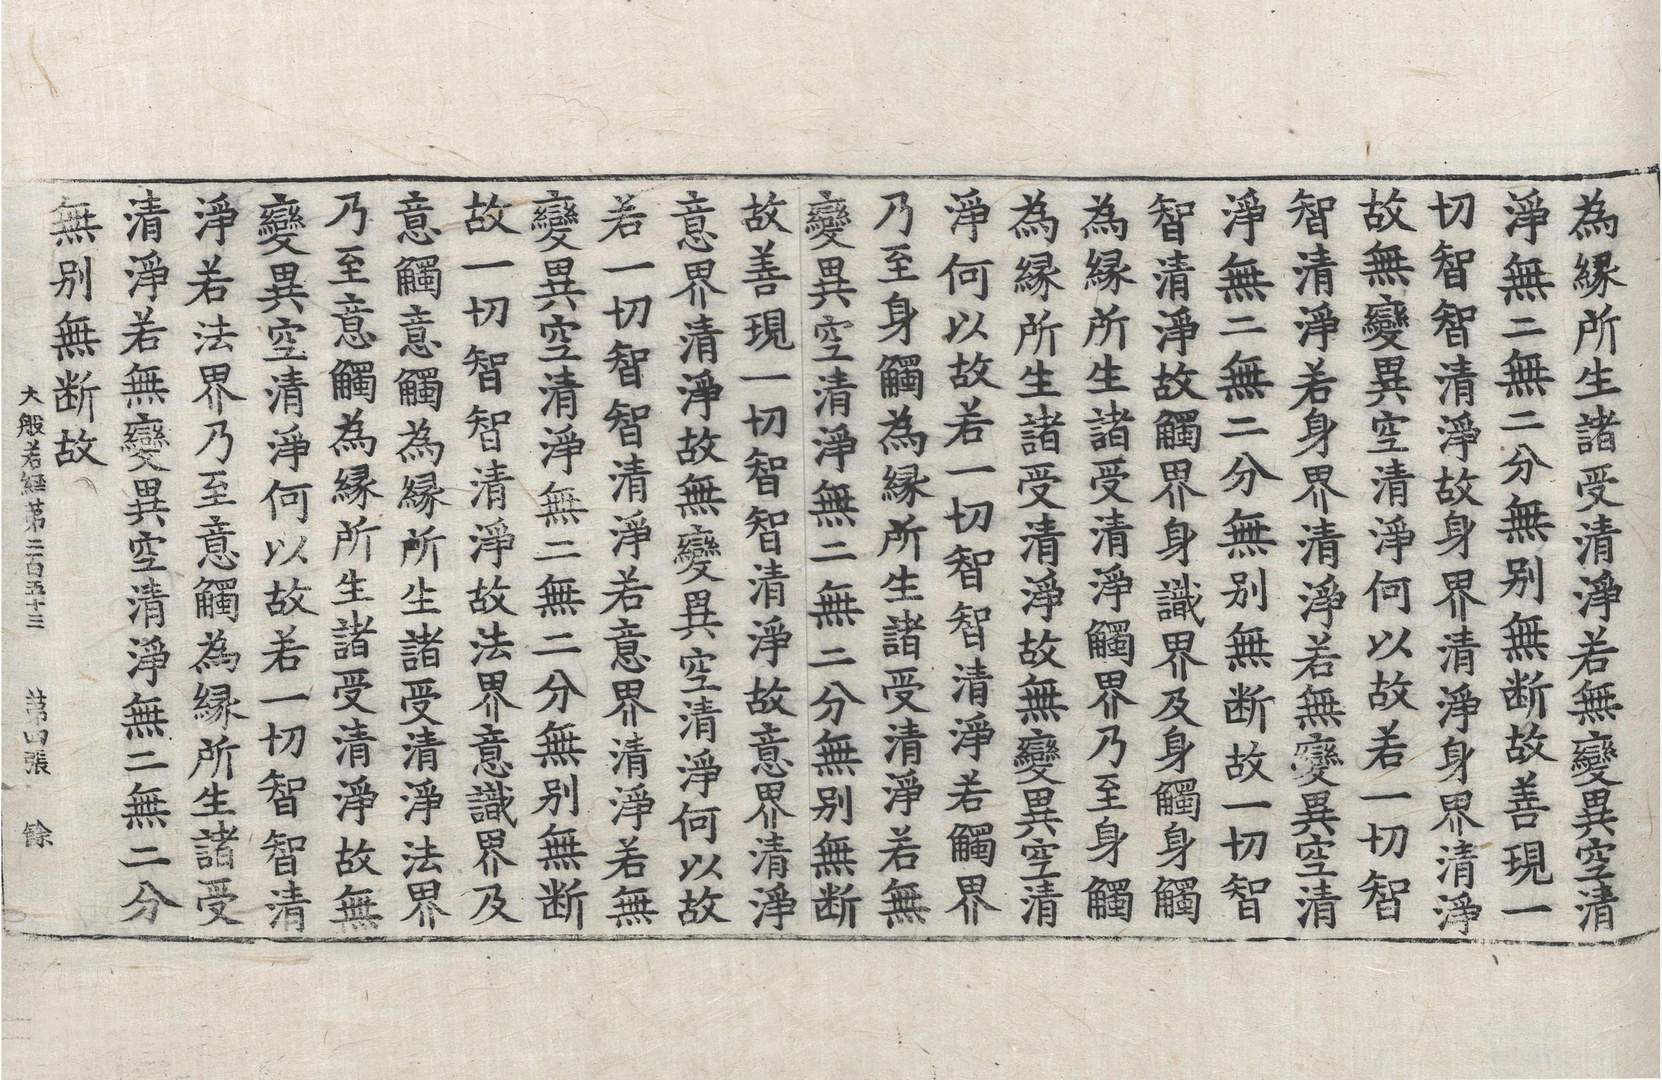 為縁所生諸受清淨若無變異空清
淨無二無二分無别無断故善現一
切智智清淨故身界清淨身界清淨
故無變異空清淨何以故若一切智
智清淨若身界清淨若無變異空清
淨無二無二分無别無断故一切智
智清淨故觸界身識界及身觸身觸
為縁所生諸受清淨觸界乃至身觸
為縁所生諸受清淨故無變異空清
淨何以故若一切智智清淨若觸界
乃至身觸為縁所生諸受清淨若無
變異空清淨無二無二分無别無断
故善現一切智智清淨故意界清淨
意界清淨故無變異空清淨何以故
若一切智智清淨若意界清淨若無
變異空清淨無二無二分無别無断
故一切智智清淨故法界意識界及
意觸意觸為縁所生諸受清淨法界
乃至意觸為縁所生諸受清淨故無
變異空清淨何以故若一切智智清
淨若法界乃至意觸為縁所生諸受
清淨若無變異空清淨無二無二分
無别無断故
大般若經第二百五十三 第四張 餘